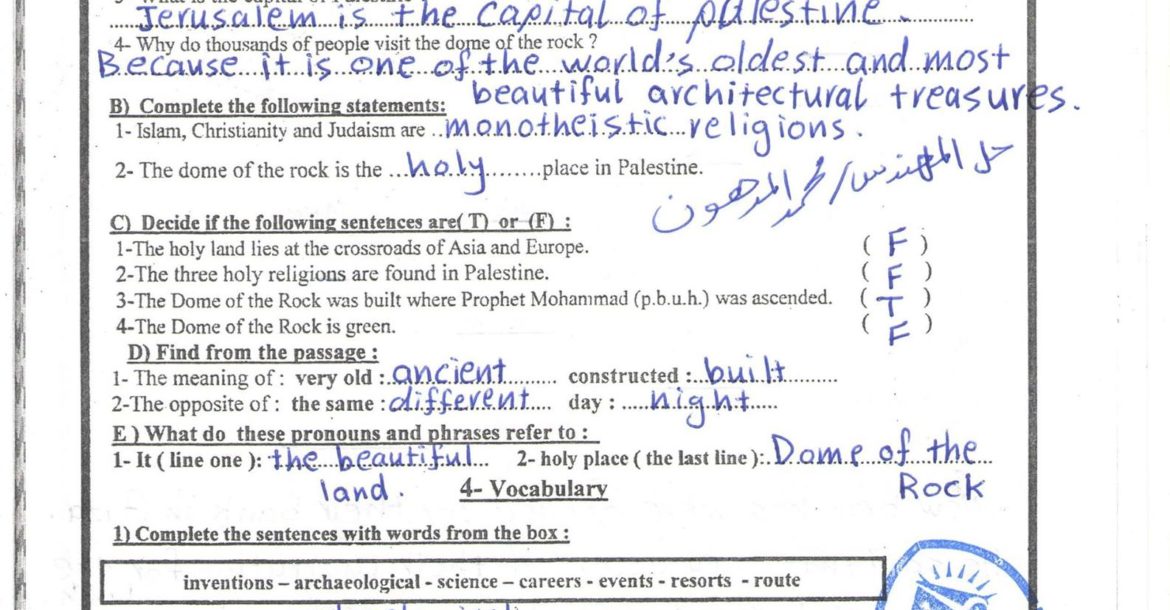 Jerusalem is the capital of palestine.
4- Why do thousands of people visit the dome of the rock ?
Because it is one of the world's oldest and most
beautiful architectural treasures.
B) Complete the following statements:
1- Islam, Christianity and Judaism are ..monotheistic religions.
2- The dome of the rock is the ...holy........place in Palestine.
حل المهندس / محمد المدهون
C) Decide if the following sentences are( T) or (F) :
1-The holy land lies at the crossroads of Asia and Europe. ( F )
2-The three holy religions are found in Palestine. ( F )
3-The Dome of the Rock was built where Prophet Mohammad (p.b.u.h.) was ascended. ( T )
4-The Dome of the Rock is green. ( F )
D) Find from the passage :
1- The meaning of : very old :.ancient.......... constructed :..built..........
2-The opposite of : the same :different.... day : .....night.....
E ) What do these pronouns and phrases refer to :
1- It ( line one ): the beautiful... 2- holy place ( the last line ):.Dome of the
land. Rock
4- Vocabulary
1) Complete the sentences with words from the box :
inventions – archaeological - science – careers - events - resorts - route